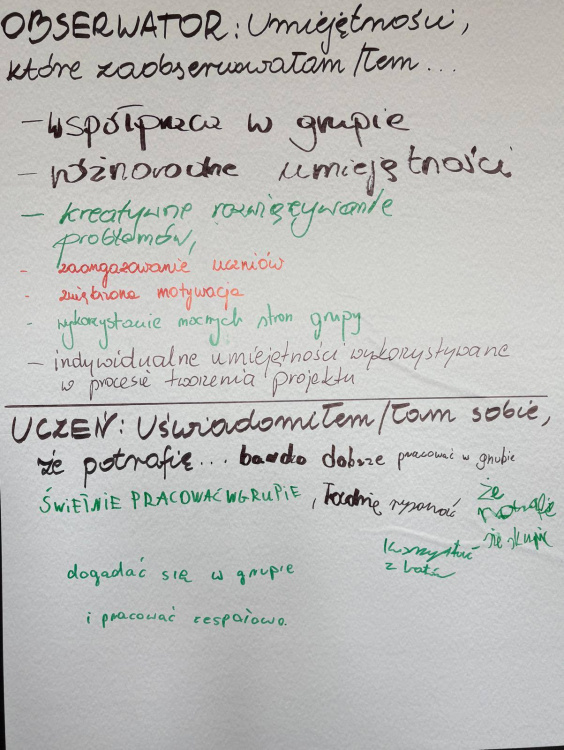 OBSERWATOR: Umiejętności,
które zaobserwowałam/łem...
- współpraca w grupie
- różnorodne umiejętności
- kreatywne rozwiązywanie
problemów,
- zaangażowanie uczniów
- zwiększona motywacja
- wykorzystanie mocnych stron grupy
- indywidualne umiejętności wykorzystywane
w procesie tworzenia projektu
UCZEŃ: Uświadomiłem/łam sobie,
że potrafię... bardzo dobrze pracować w grupie
ŚWIETNIE PRACOWAĆ W GRUPIE, ładnie rysować
że
potrafię
się skupić
korzystać
z
dogadać się w grupie
i pracować zespołowo.